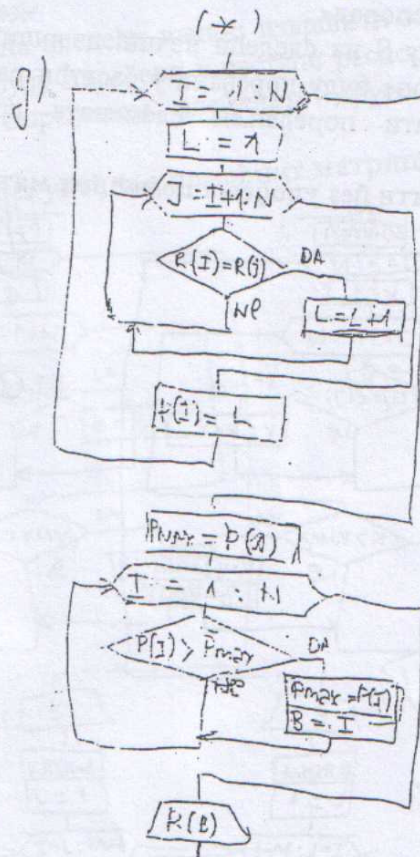 g)
(*)
I = 1 : N
L = 1
J = I+1 : N
R(I)=R(J) DA
NE
L=L+1
P(I) = L
Pmax = P(1)
I = 1 : N
P(I) > Pmax DA
NE
Pmax = P(I)
B = I
R(B)